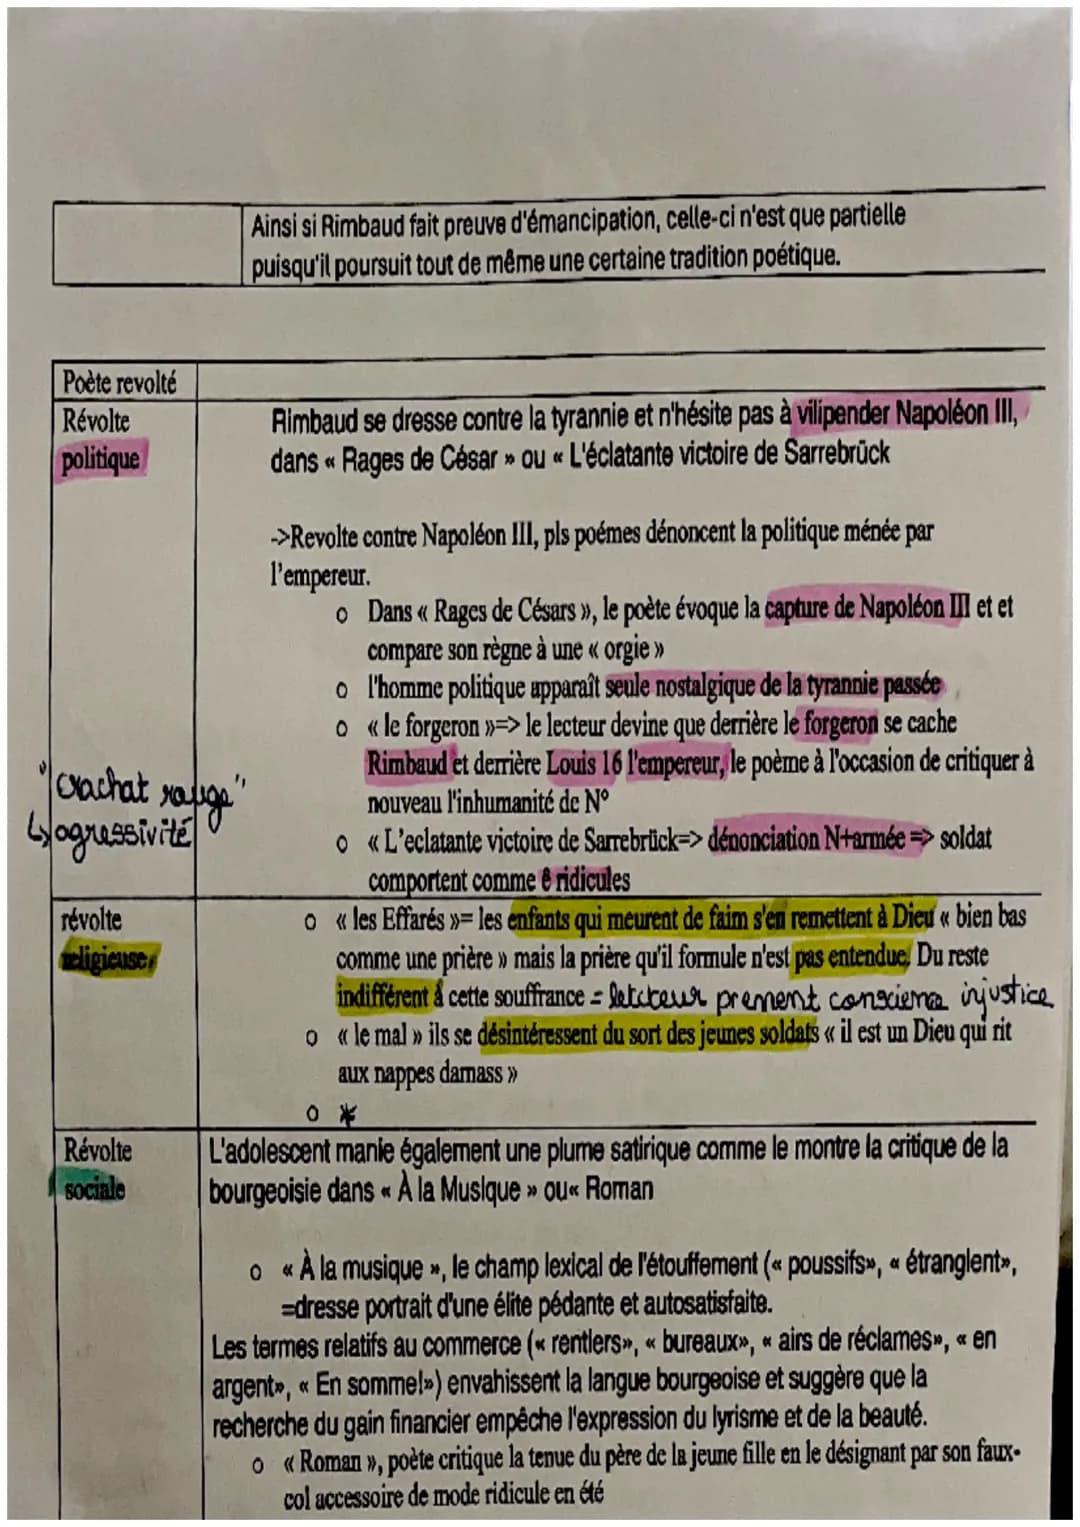 Ainsi si Rimbaud fait preuve d'émancipation, celle-ci n'est que partielle
puisqu'il poursuit tout de même une certaine tradition poétique.
Poète revolté
Révolte
politique
Rimbaud se dresse contre la tyrannie et n'hésite pas à vilipender Napoléon III,
dans « Rages de César » ou « L'éclatante victoire de Sarrebrück
->Revolte contre Napoléon III, pls poémes dénoncent la politique ménée par
l'empereur.
o Dans « Rages de Césars », le poète évoque la capture de Napoléon III et et
compare son règne à une « orgie »
o l'homme politique apparaît seule nostalgique de la tyrannie passée
o « le forgeron »=> le lecteur devine que derrière le forgeron se cache
Rimbaud et derrière Louis 16 l'empereur, le poème à l'occasion de critiquer à
nouveau l'inhumanité de N°
o « L'eclatante victoire de Sarrebrück=> dénonciation N+armée => soldat
comportent comme ê ridicules
"crachat rouge"
↳ agressivité
révolte
religieuse
o « les Effarés »= les enfants qui meurent de faim s'en remettent à Dieu « bien bas
comme une prière » mais la prière qu'il formule n'est pas entendue. Du reste
indifférent à cette souffrance = letcteur prennent conscience injustice
o « le mal » ils se désintéressent du sort des jeunes soldats « il est un Dieu qui rit
aux nappes damass »
o *
Révolte
sociale
L'adolescent manie également une plume satirique comme le montre la critique de la
bourgeoisie dans « À la Musique » ou« Roman
o « À la musique », le champ lexical de l'étouffement (« poussifs», « étranglent»,
=dresse portrait d'une élite pédante et autosatisfaite.
Les termes relatifs au commerce (« rentiers», « bureaux», « airs de réclames», « en
argent», « En somme!») envahissent la langue bourgeoise et suggère que la
recherche du gain financier empêche l'expression du lyrisme et de la beauté.
o « Roman », poète critique la tenue du père de la jeune fille en le désignant par son faux-
col accessoire de mode ridicule en été